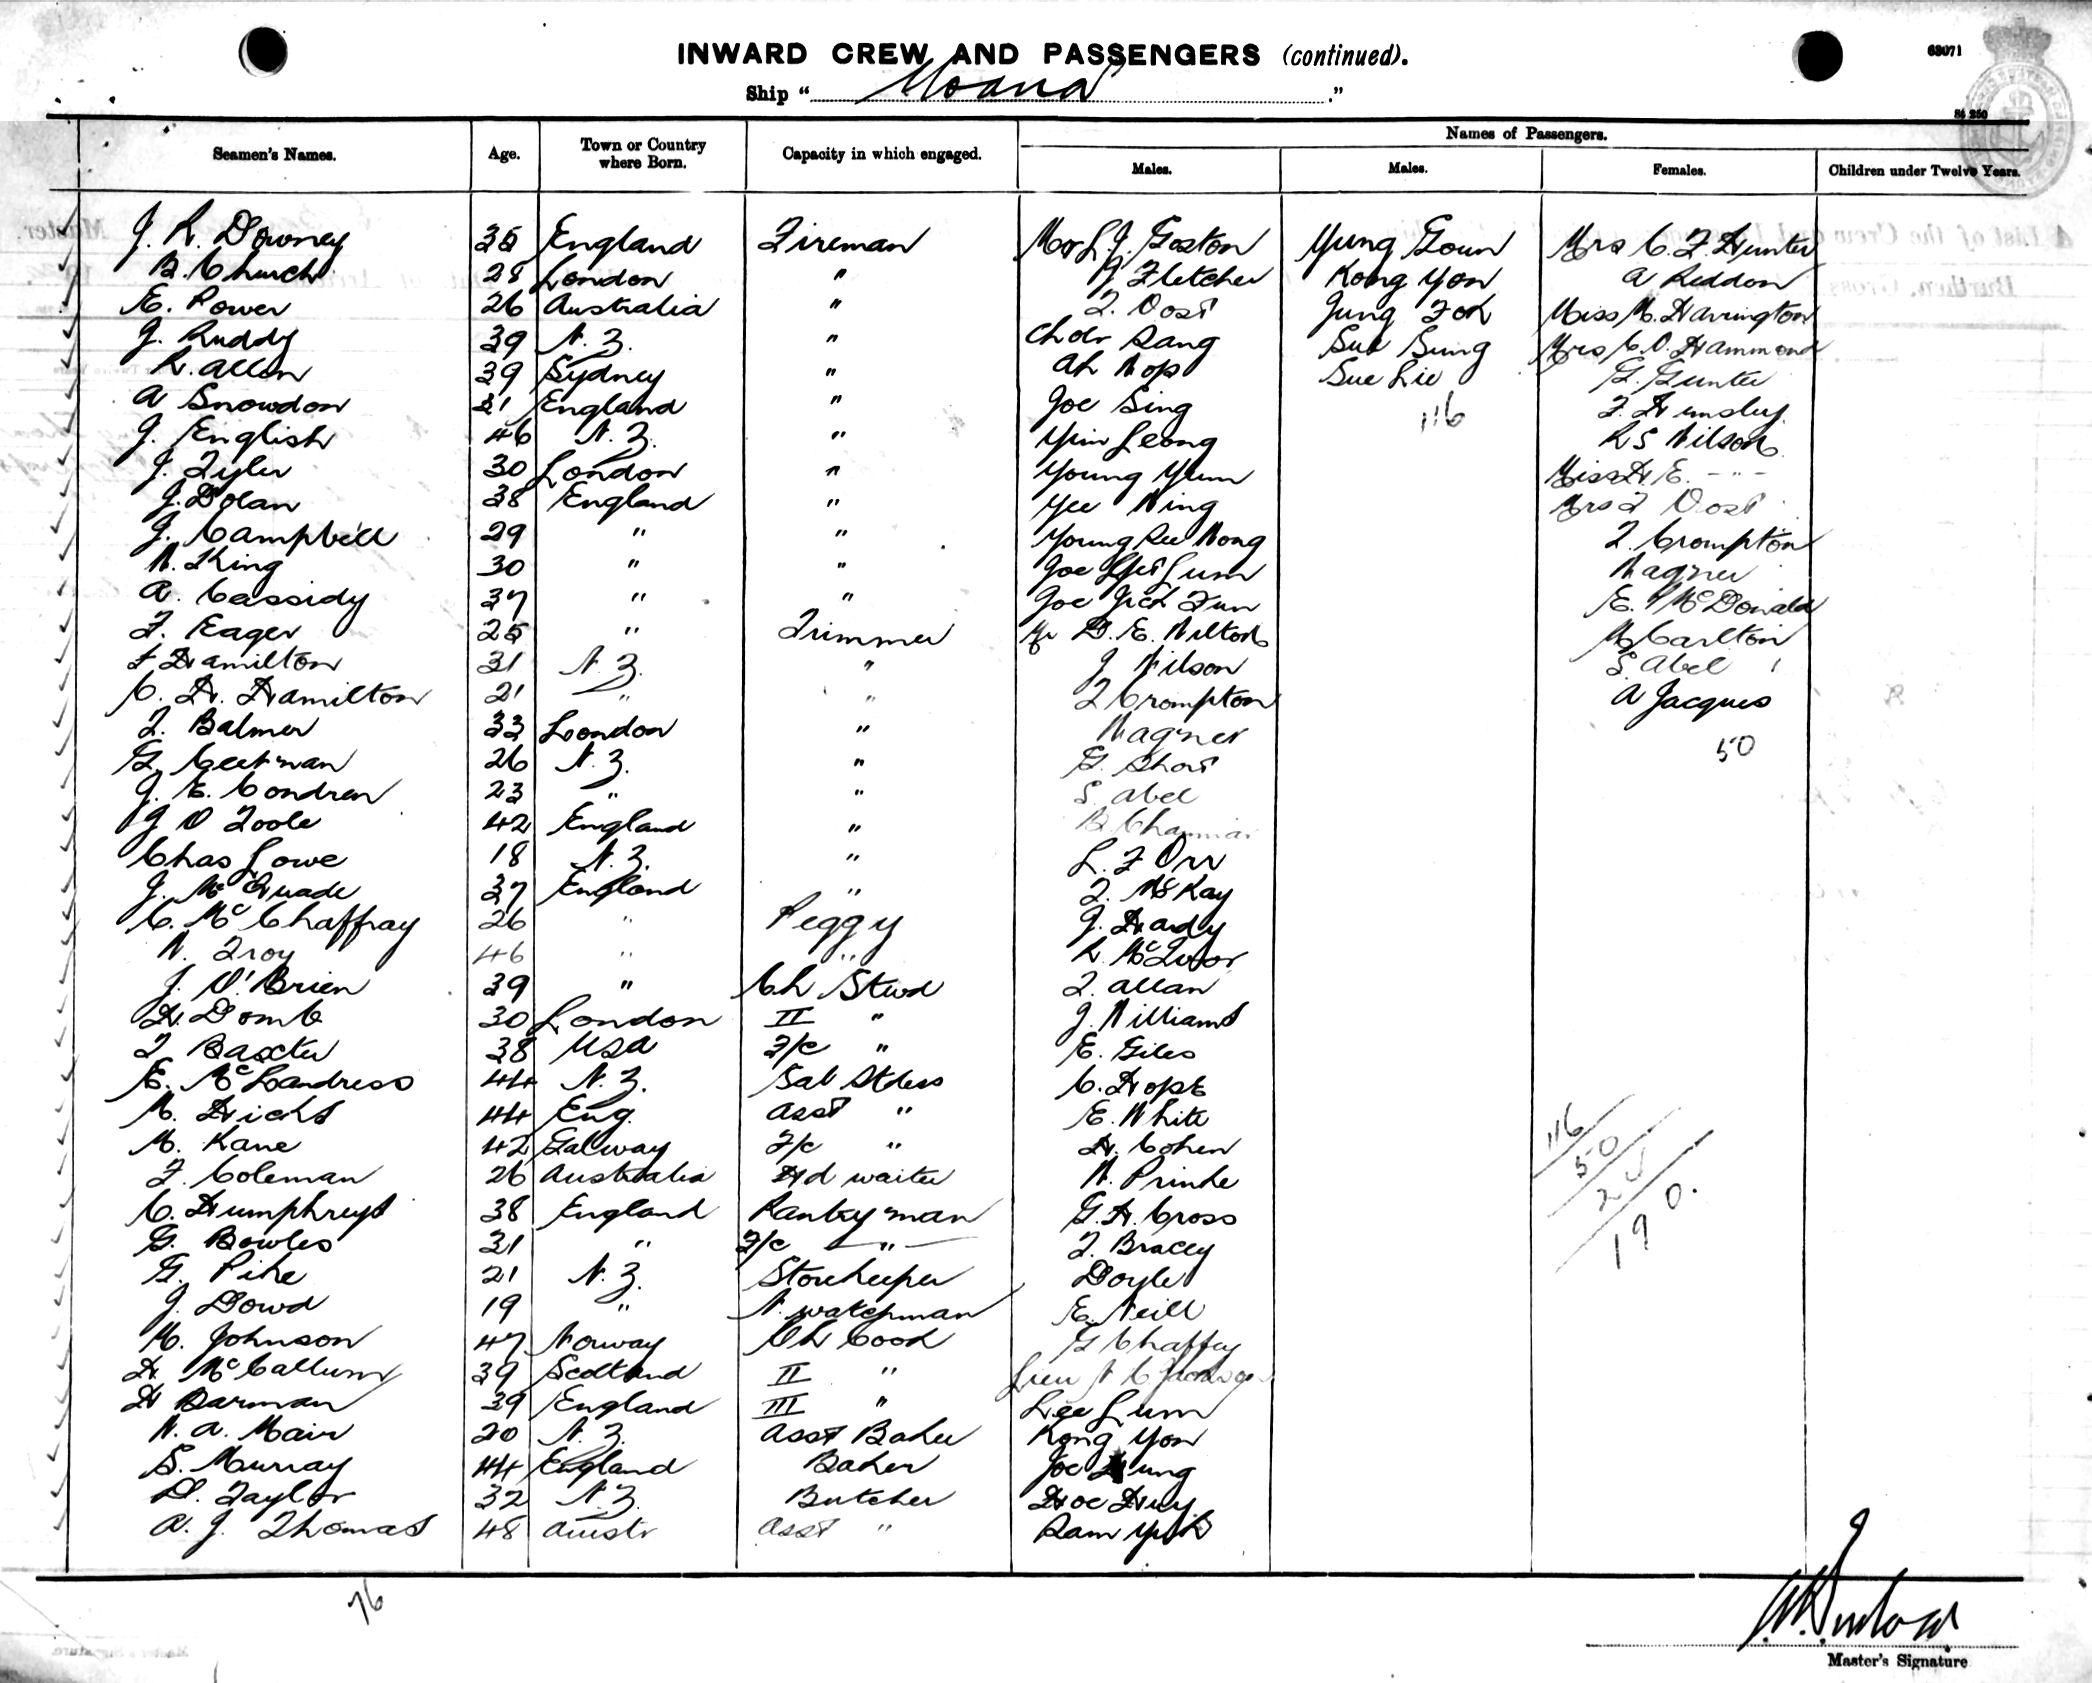 INWARD CREW AND PASSENGERS (continued).
63071
Ship "Moana."
Seamen's Names. Age. Town or Country where Born. Capacity in which engaged. Names of Passengers. Males. Males. Females. Children under Twelve Years.
J. R. Downey 35 England Fireman Mr L. J. Goston Yung Goun Mrs C. F. Hunter
B. Church 28 London " J Fletcher Kong Yon A Reddon
E. Power 26 Australia " T. Oost Jung Fok Miss M. Harrington
J. Ruddy 39 N.Z. " Chdr Sang Sue Sung Mrs C. O. Hammond
R. Allen 39 Sydney " Ah Hop Sue Lie G. Gunter
A Snowdon 21 England " Joe Sing 116 F. Hemsley
J. English 46 N.Z. " Yim Leong R S Wilson
J. Tyler 30 London " Young Yum Miss H. E. - " -
J. Dolan 38 England " Yee Wing Mrs T Oost
J. Campbell 29 " " Young See Wong T. Crompton
W. King 30 " " Joe Lum Wagner
A. Cassidy 37 " " Joe Jick Fun E. McDonald
F. Eager 25 " Trimmer Mr D. E. Wilton M Carlton
F Hamilton 31 N.Z. " J Wilson S. Abel
C. H. Hamilton 21 " " T Crompton A Jacques
T. Balmer 33 London " Wagner 50
G. Cectman 26 N.Z. " G. Short
J. E. Condren 23 " " S. Abel
J O Toole 42 England " B. Chapman
Chas Lowe 18 N.Z. " L. F Orr
J. McQuade 37 England " T. McKay
C. McChaffray 26 " Peggy J. Hardy
W. Troy 46 " " R. McIvor
J. O'Brien 39 " Ch Stewd T. Allan
H. Domb 30 London II " J. Williams
T Baxter 38 USA F/c " E. Giles
E. McLandress 44 N.Z. Sal Stdess C. Hope
M. Hicks 44 Eng. Asst " E. White
M. Kane 42 Galway F/c " H. Cohen
F. Coleman 26 Australia Hd waiter W. Prinke
C. Humphreys 38 England Pantryman G. H. Cross
G. Bowles 31 " F/c " T. Bracey
G. Pike 21 N.Z. Storekeeper Doyle
J. Dowd 19 " N. watchman E. Neill
M. Johnson 47 Norway Ch Cook G Chaffey
H. McCallum 39 Scotland II " Lieu
H Barman 39 England III " Lee Lum
W. A. Mair 20 N.Z. Asst Baker Kong Yon
S. Murray 44 England Baker Joe Hung
D. Taylor 32 N.Z. Butcher Hoe Huy
A. J. Thomas 48 Austr Asst " Sam Yick
116
50
24
190.
76
Master's Signature